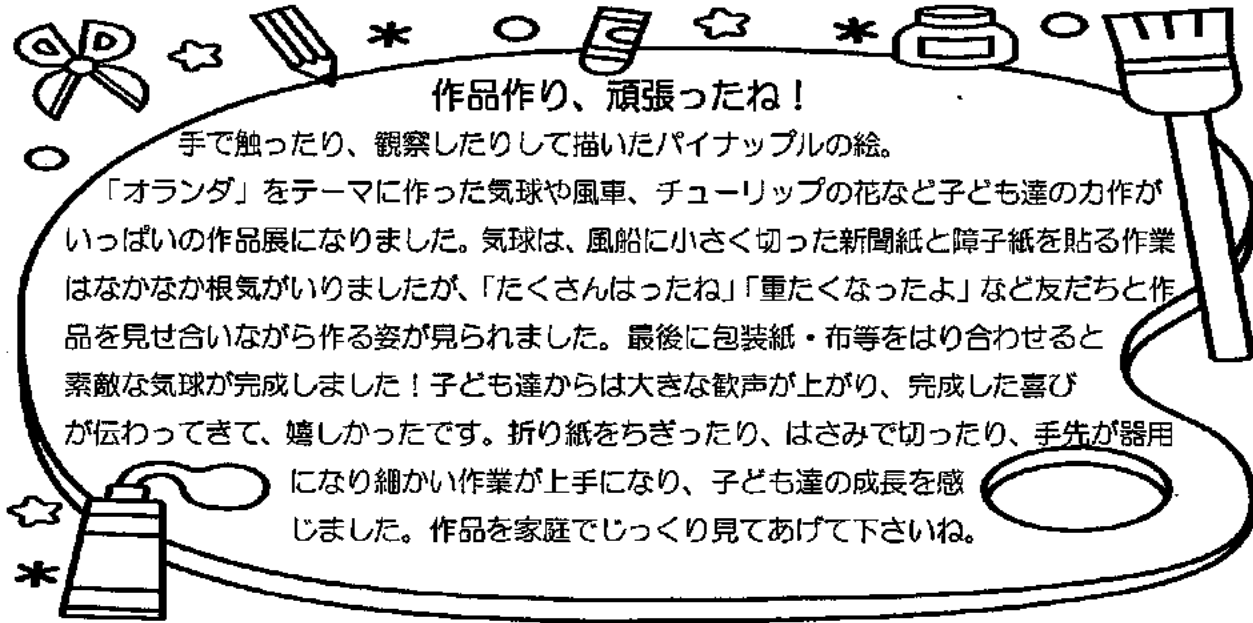 作品作り、頑張ったね！
手で触ったり、観察したりして描いたパイナップルの絵。
「オランダ」をテーマに作った気球や風車、チューリップの花など子ども達の力作が
いっぱいの作品展になりました。気球は、風船に小さく切った新聞紙と障子紙を貼る作業
はなかなか根気がいりましたが、「たくさんはったね」「重たくなったよ」など友だちと作
品を見せ合いながら作る姿が見られました。最後に包装紙・布等をはり合わせると
素敵な気球が完成しました！子ども達からは大きな歓声が上がり、完成した喜び
が伝わってきて、嬉しかったです。折り紙をちぎったり、はさみで切ったり、手先が器用
になり細かい作業が上手になり、子ども達の成長を感
じました。作品を家庭でじっくり見てあげて下さいね。